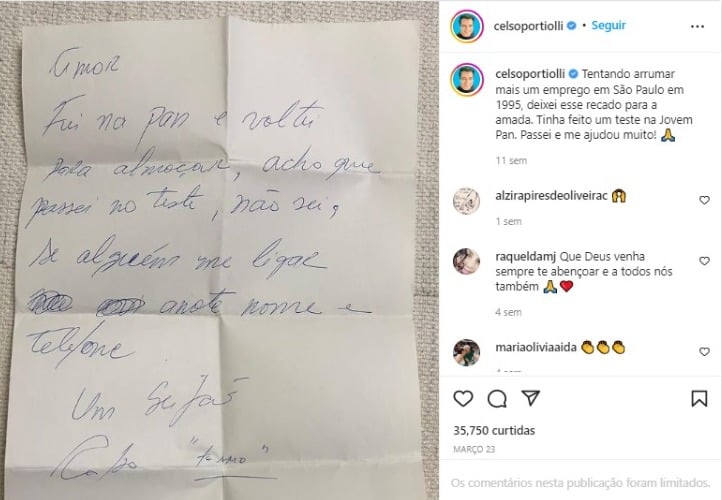 Amor
Fui na Pan e voltei
para almoçar, acho que
passei no teste, não sei,
se alguém me ligar
anote nome e
telefone
Um
"te amo"
celsoportiolli • Seguir
celsoportiolli Tentando arrumar
mais um emprego em São Paulo em
1995, deixei esse recado para a
amada. Tinha feito um teste na Jovem
Pan. Passei e me ajudou muito! 🙏
11 sem
alzirapiresdeoliveirac 🙌
1 sem
raqueldamj Que Deus venha
sempre te abençoar e a todos nós
também 🙏❤️
4 sem
mariaoliviaaida 👏👏👏
35,750 curtidas
MARÇO 23
Os comentários nesta publicação foram limitados.